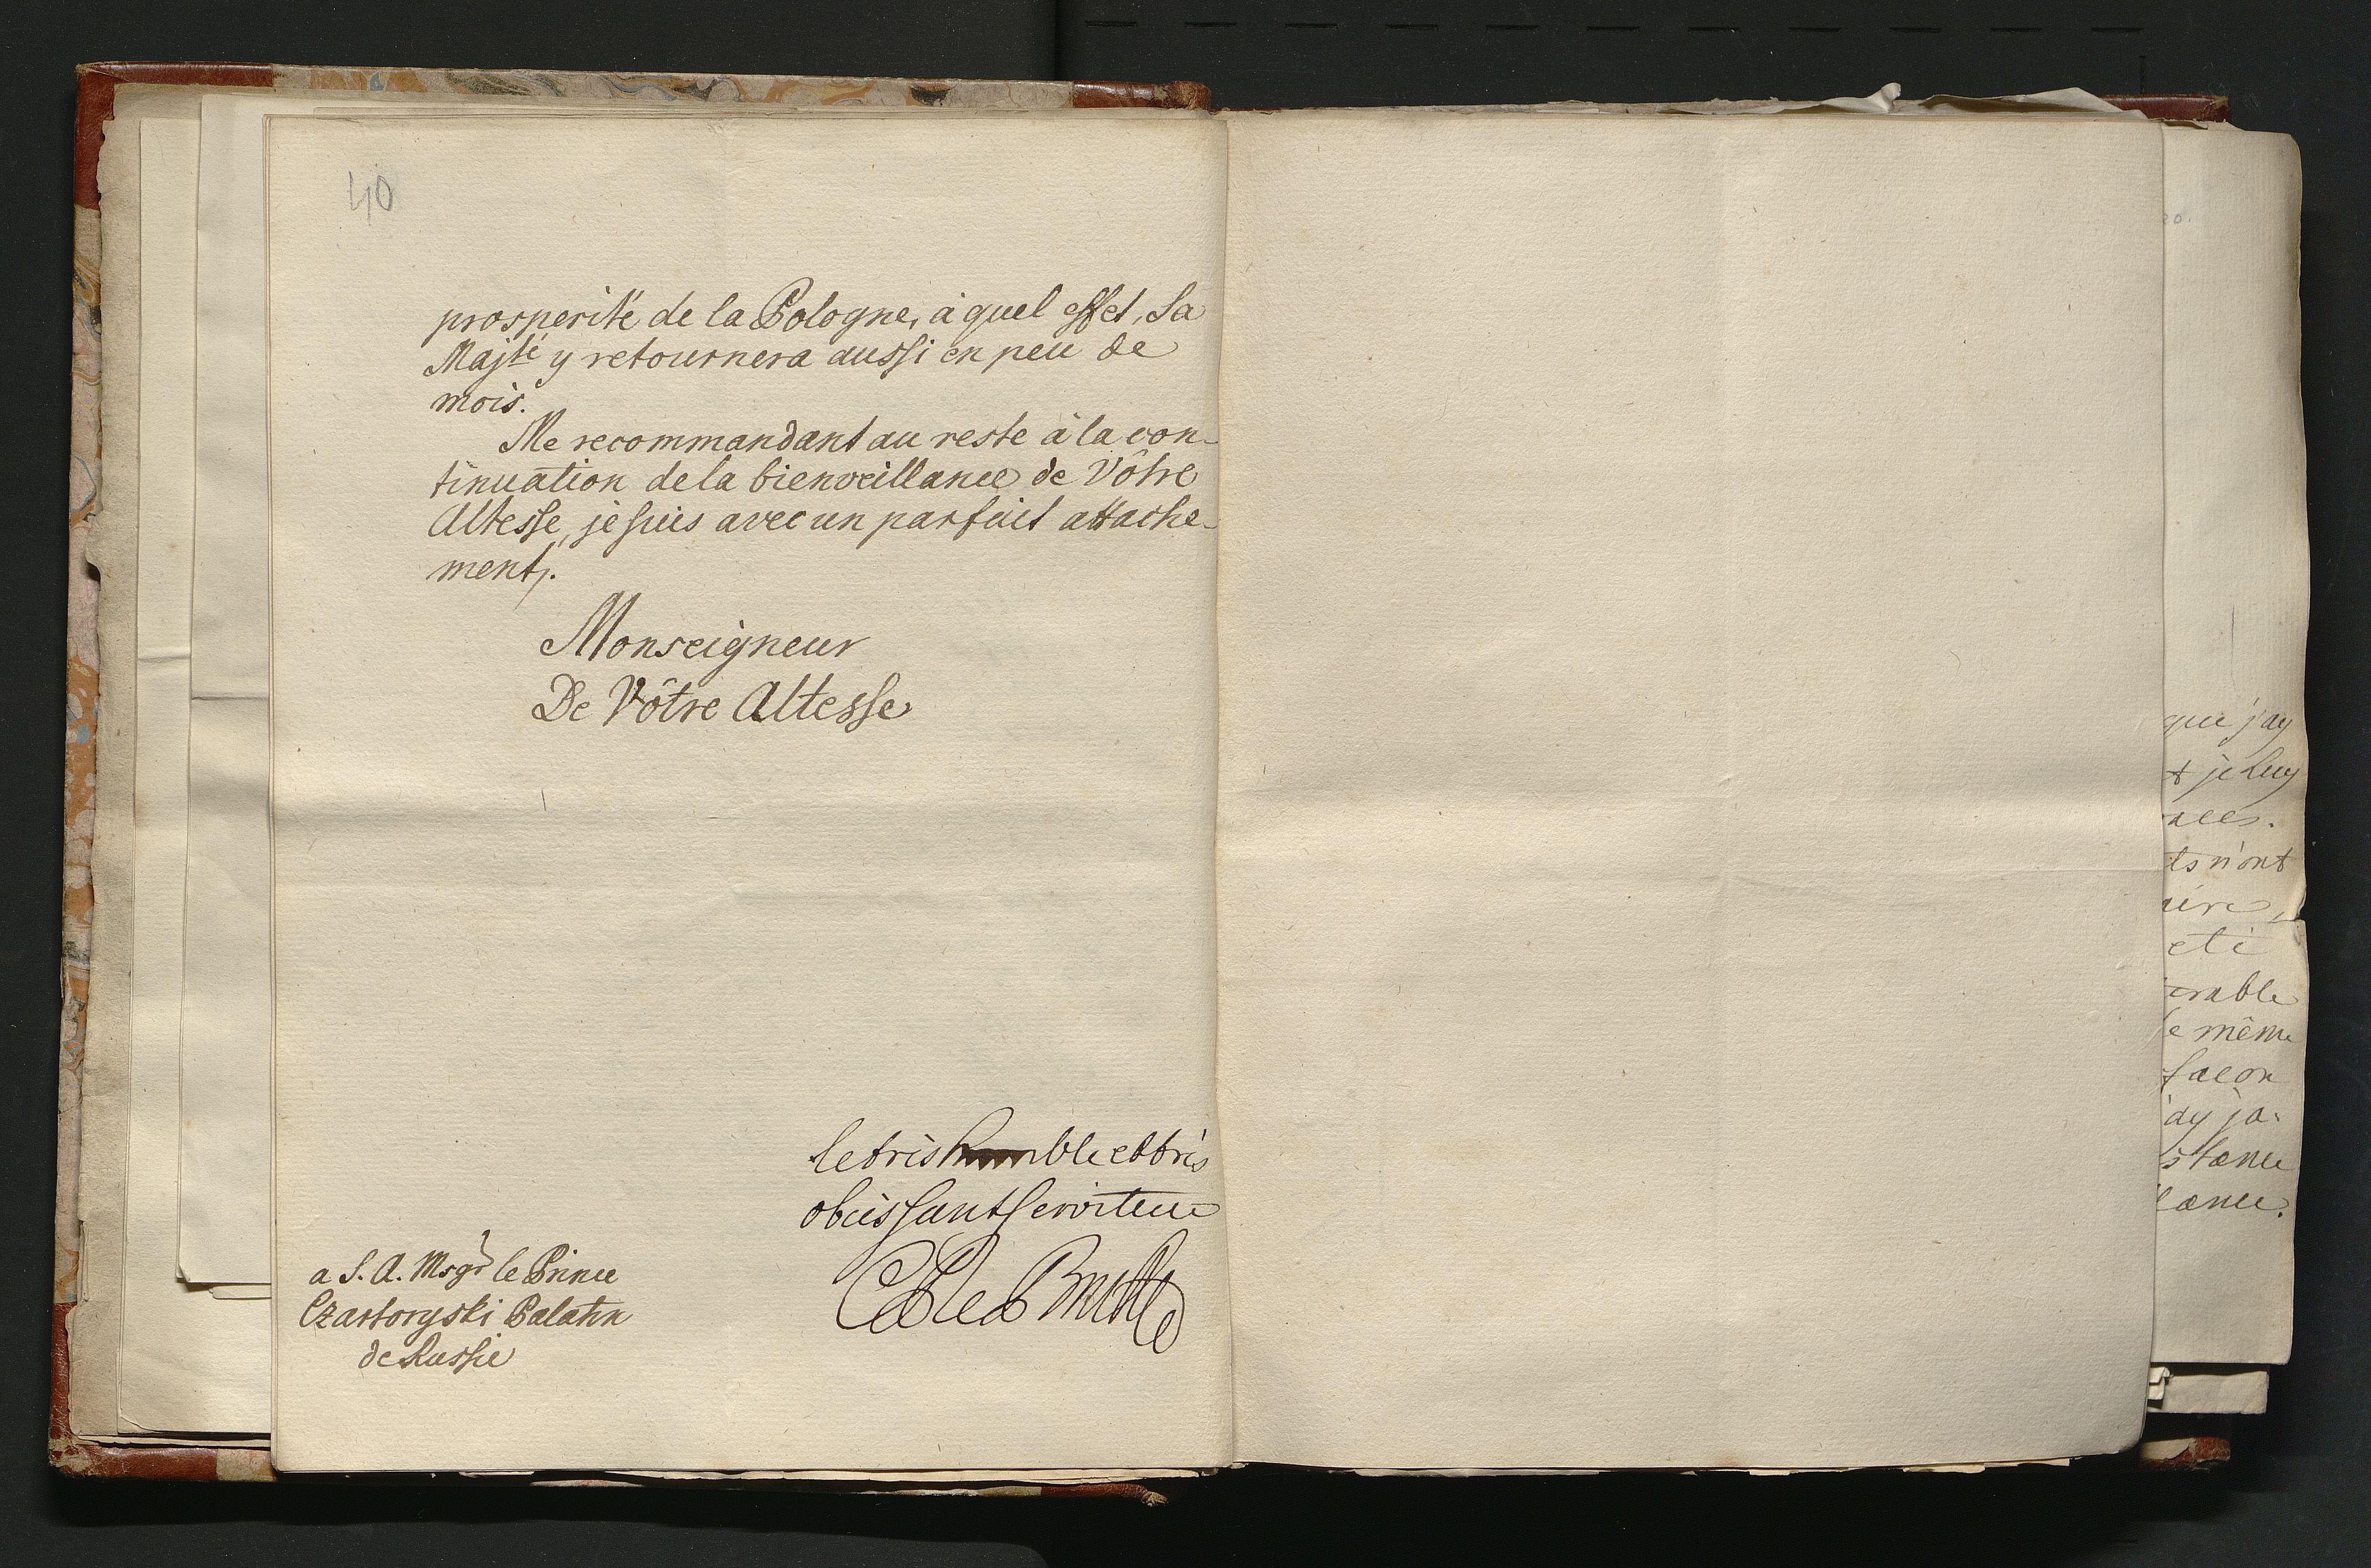 40
prosperité de la Pologne, à quel effet, Sa
Majté y retournera aussi en peu de
mois.
Me recommandant au reste à la con-
tinuation de la bienveillance de Vôtre
Altesse, je suis avec un parfait attache-
ment.
Monseigneur
De Vôtre Altesse
le tris humble et tris
obeissant serviteur
C de Bruhl
a S. A. Msgr le Prince
Czartoryski Palatin
de Russie
que j'ay
je luy
n'ont
eté
même
facon
ja-